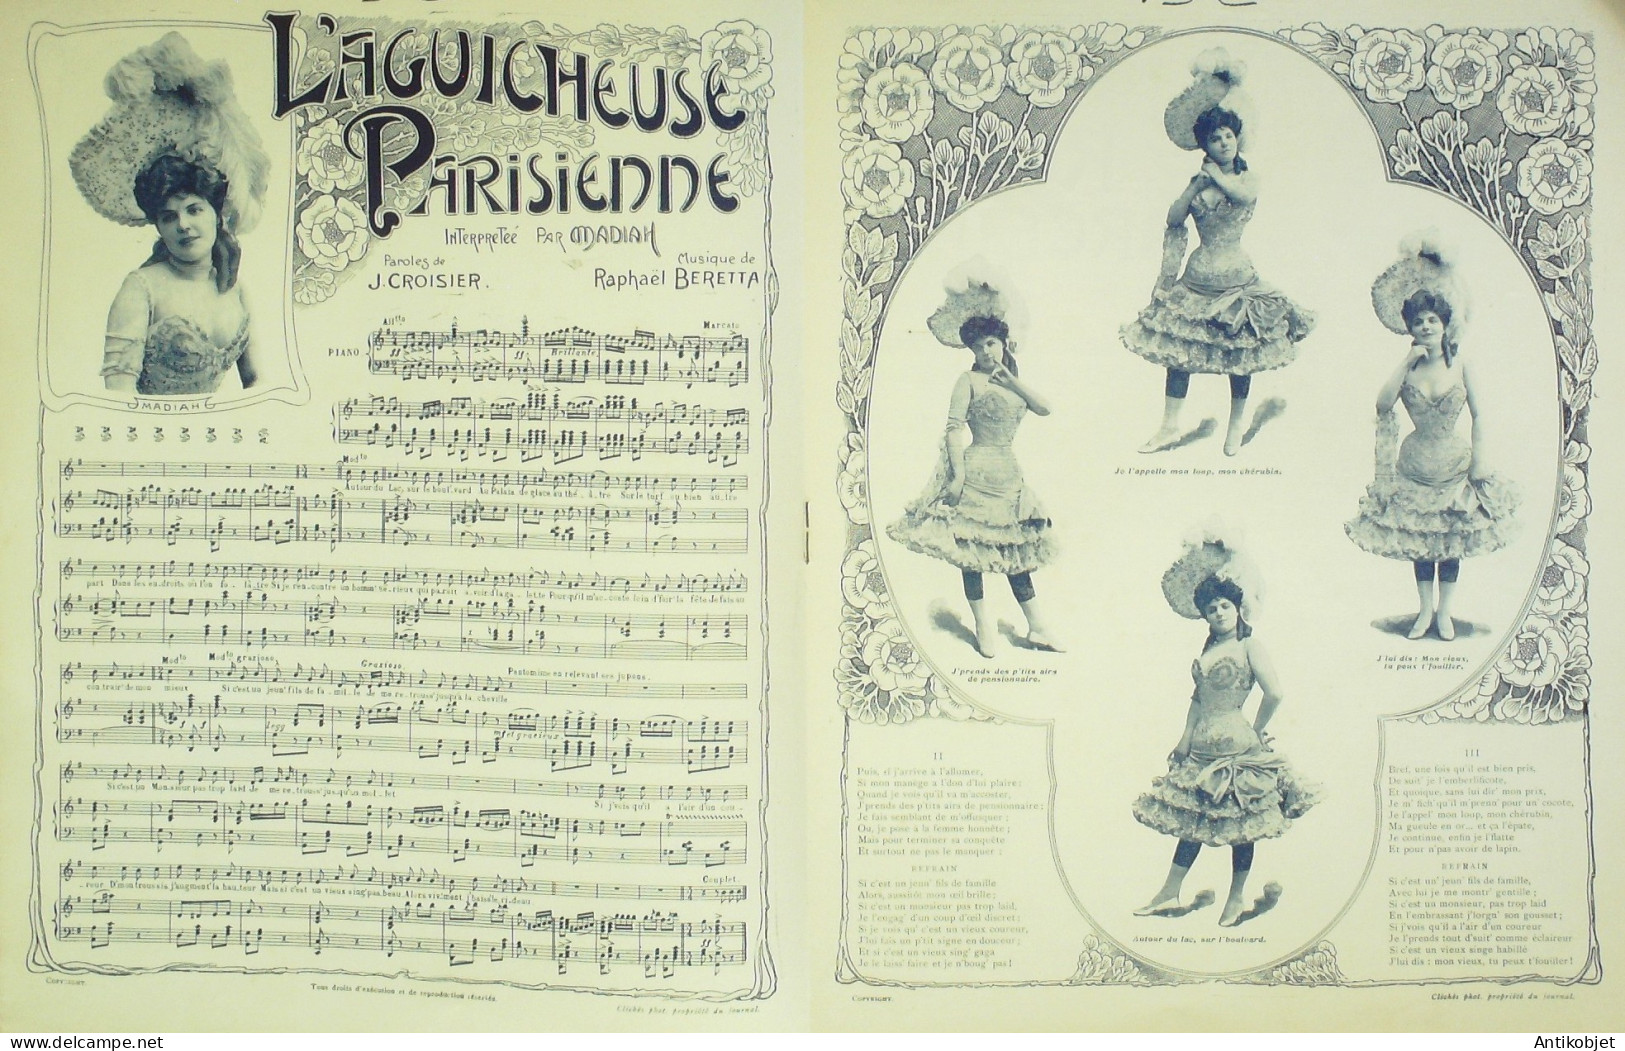 L'AGUICHEUSE
PARISIENNE
INTERPRETÉE PAR MADIAH
Paroles de
J. CROISIER.
Musique de
Raphaël BERETTA
MADIAH
PIANO
All.tto
ff
ff
Brillante
Marcato
Mod.to
Autour du Lac, sur le boul'vard Au Palais de glace au thé _ â _ tre Sur le turf ou bien au _ tre
part Dans les en _ droits où l'on fo _ lâ _ tre Si je ren _ contre un homm' sé _ rieux qui paraît a _ voir d'la ga _ lette Pour qu'il m'ac _ coste loin d'fair' la fête Je fais au
Mod.to Mod.to grazioso Grazioso. Pantomime en relevant ses jupons.
contrair' de mon mieux Si c'est un jeun' fils de fa _ mil _ le de me re _ trouss' jusqu'à la cheville
legg
mf et gracieux
Si c'est un Monsieur pas trop laid de me re _ trouss' jus _ qu'au mol _ let Si j'vois qu'il a l'air d'un cou _
Couplet.
_ reur D'mon trouss' là j'augment' la hau _ teur Mais si c'est un vieux sing' pas beau, Alors viv'ment j'baiss' le ri _ deau
COPYRIGHT.
Tous droits d'exécution et de reproduction réservés.
Clichés phot. propriété du journal.
Je l'appelle mon loup, mon chérubin.
J'prends des p'tits airs
de pensionnaire.
J'lui dis : Mon vieux,
tu peux t'fouiller.
Autour du lac, sur l'boulvard.
II
Puis, si j'arrive à l'allumer,
Si mon manège a l'don d'lui plaire ;
Quand je vois qu'il va m'accoster,
J'prends des p'tits airs de pensionnaire ;
Je fais semblant de m'offusquer ;
Ou, je pose à la femme honnête ;
Mais pour terminer sa conquête
Et surtout ne pas le manquer ;
REFRAIN
Si c'est un jeun' fils de famille
Alors, aussitôt mon œil brille ;
Si c'est un monsieur pas trop laid,
Je l'engag' d'un coup d'œil discret ;
Si je vois qu' c'est un vieux coureur,
J'lui fais un p'tit signe en douceur ;
Et si c'est un vieux sing' gaga
Je le laiss' faire et je n'boug' pas !
III
Bref, une fois qu'il est bien pris,
De suit' je l'emberlificote,
Et quoique, sans lui dir' mon prix,
Je m' fich' qu'il m'prenn' pour un' cocote,
Je l'appel' mon loup, mon chérubin,
Ma gueule en or... et ça l'épate,
Je continue, enfin je l'flatte
Et pour n'pas avoir de lapin.
REFRAIN
Si c'est un' jeun' fils de famille,
Avec lui je me montr' gentille ;
Si c'est un monsieur, pas trop laid
En l'embrassant j'lorgn' son gousset ;
Si j'vois qu'il a l'air d'un coureur
Je l'prends tout d'suit' comme éclaireur
Si c'est un vieux singe habillé
J'lui dis : mon vieux, tu peux t'fouiller !
COPYRIGHT.
Clichés phot. propriété du journal.
Antikobjet